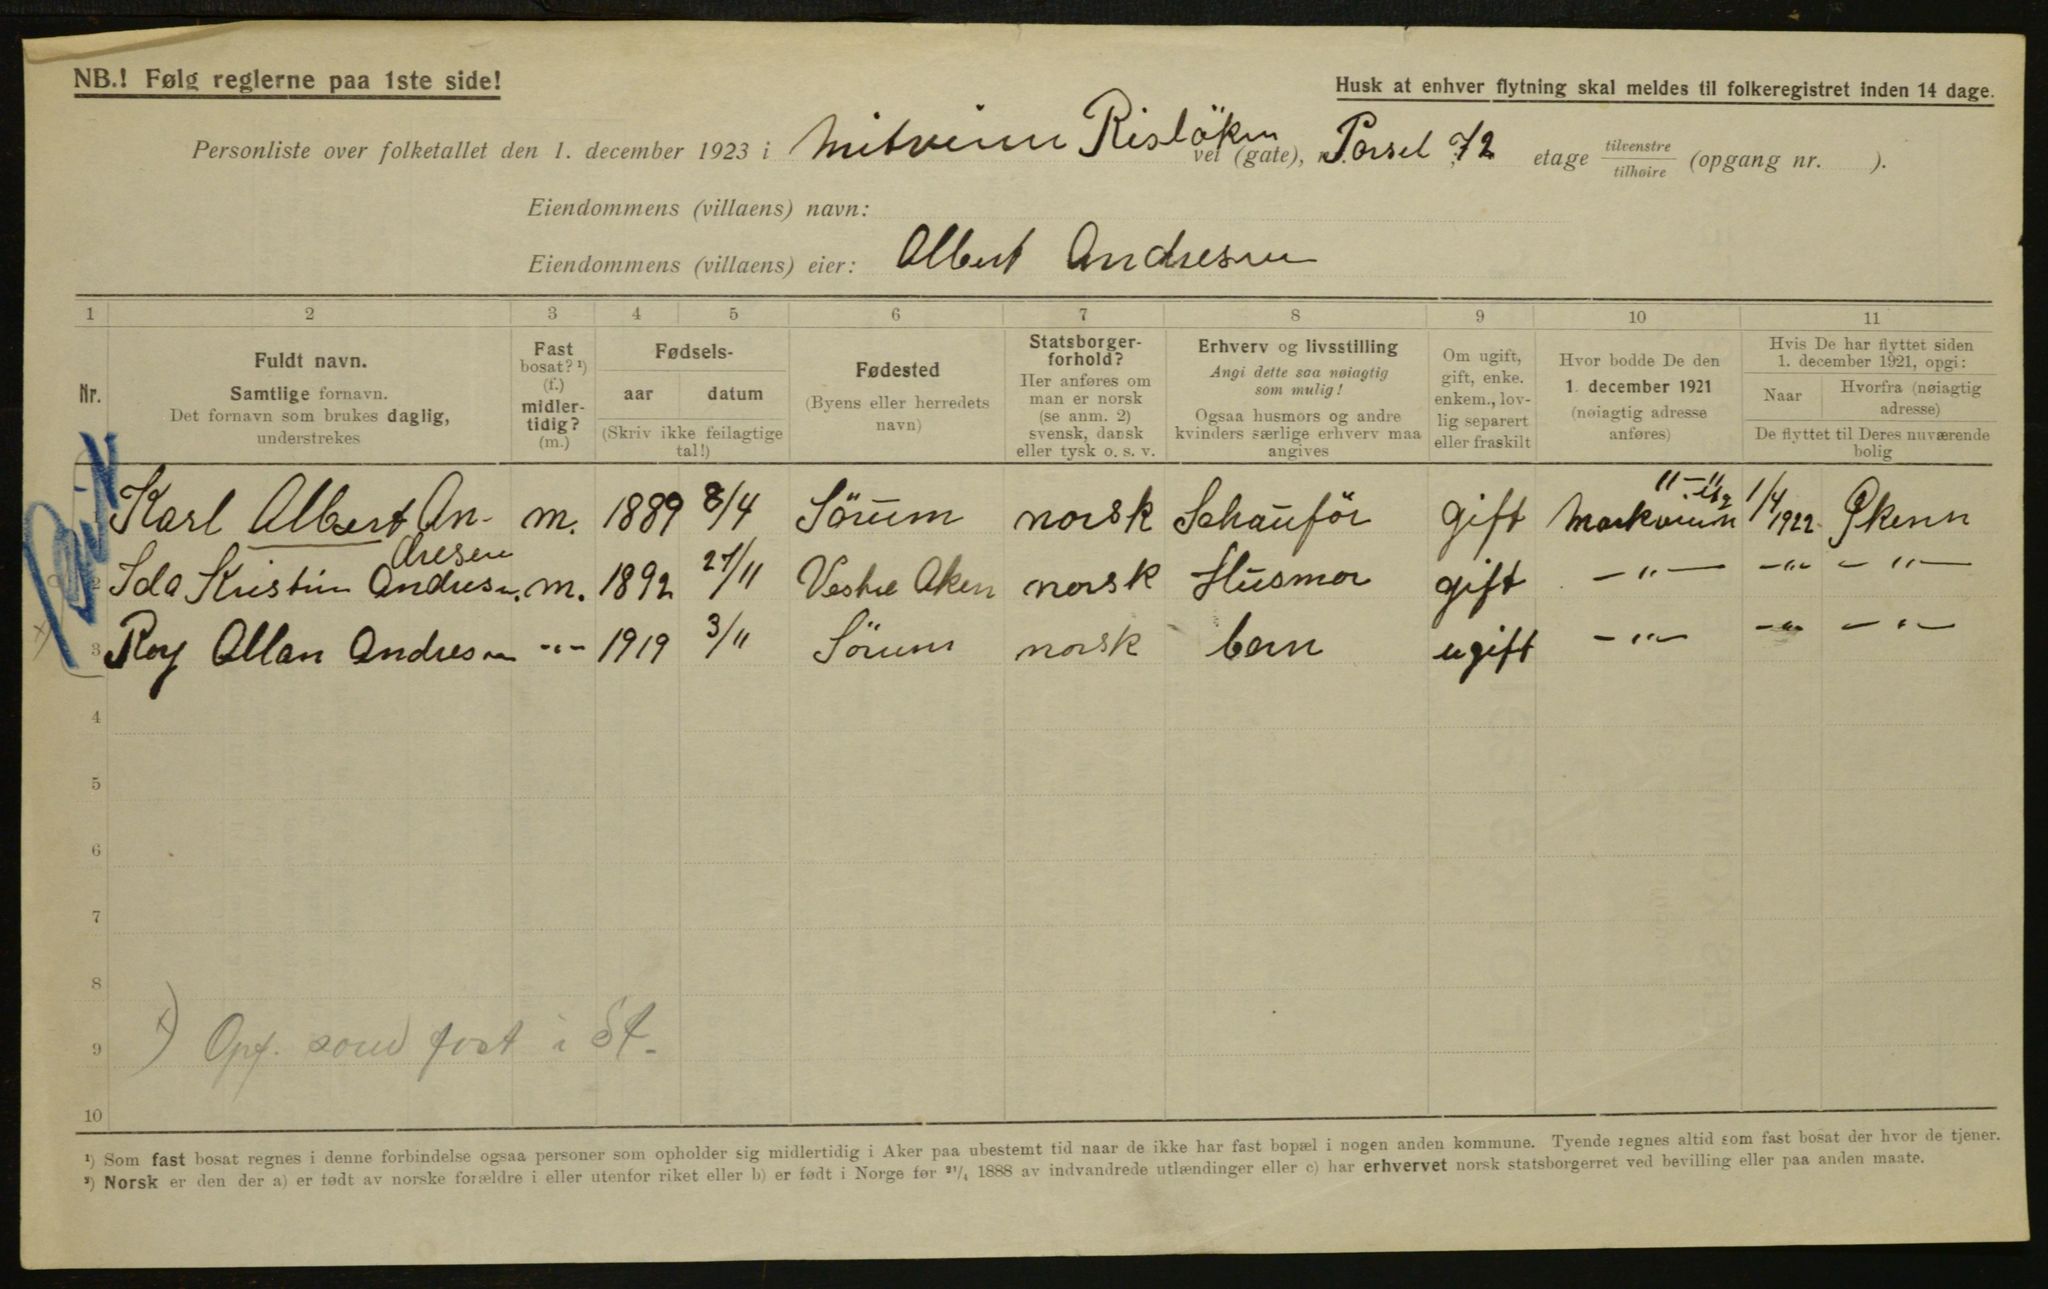 NB.! Følg reglerne paa 1ste side!
Husk at enhver flytning skal meldes til folkeregistret inden 14 dage.
Personliste over folketallet den 1. december 1923 i Mitveien Risløken vei (gate), Parsel 72 etage tilvenstre tilhøire (opgang nr. ).
Eiendommens (villaens) navn:
Eiendommens (villaens) eier: Albert Andresen
1 2 3 4 5 6 7 8 9 10 11
Nr.
Fuldt navn.
Samtlige fornavn.
Det fornavn som brukes daglig,
understrekes
Fast
bosat? ¹)
(f.)
midler-
tidig?
(m.)
Fødsels-
aar datum
(Skriv ikke feilagtige
tal!)
Fødested
(Byens eller herredets
navn)
Statsborger-
forhold?
Her anføres om
man er norsk
(se anm. 2)
svensk, dansk
eller tysk o. s. v.
Erhverv og livsstilling
Angi dette saa nøiagtig
som mulig!
Ogsaa husmors og andre
kvinders særlige erhverv maa
angives
Om ugift,
gift, enke.
enkem., lov-
lig separert
eller fraskilt
Hvor bodde De den
1. december 1921
(nøiagtig adresse
anføres)
Hvis De har flyttet siden
1. december 1921, opgi:
Naar Hvorfra (nøiagtig
adresse)
De flyttet til Deres nuværende
bolig
Karl Albert An- m. 1889 8/4 Sörum norsk Schauför gift Markveien 1/4 1922
dresen
2 Ida Kristin Andresen. m. 1892 27/11 Vestre Aker norsk Husmor gift -"- -"- -"-
3 Roy Allan Andresen -"- 1919 3/11 Sörum norsk barn ugift -"- -"- -"-
4
5
6
7
8
9
10
x) Opf. som fast i St.
¹) Som fast bosat regnes i denne forbindelse ogsaa personer som opholder sig midlertidig i Aker paa ubestemt tid naar de ikke har fast bopæl i nogen anden kommune. Tyende regnes altid som fast bosat der hvor de tjener.
²) Norsk er den der a) er født av norske forældre i eller utenfor riket eller b) er født i Norge før ²¹/₄ 1888 av indvandrede utlændinger eller c) har erhvervet norsk statsborgerret ved bevilling eller paa anden maate.